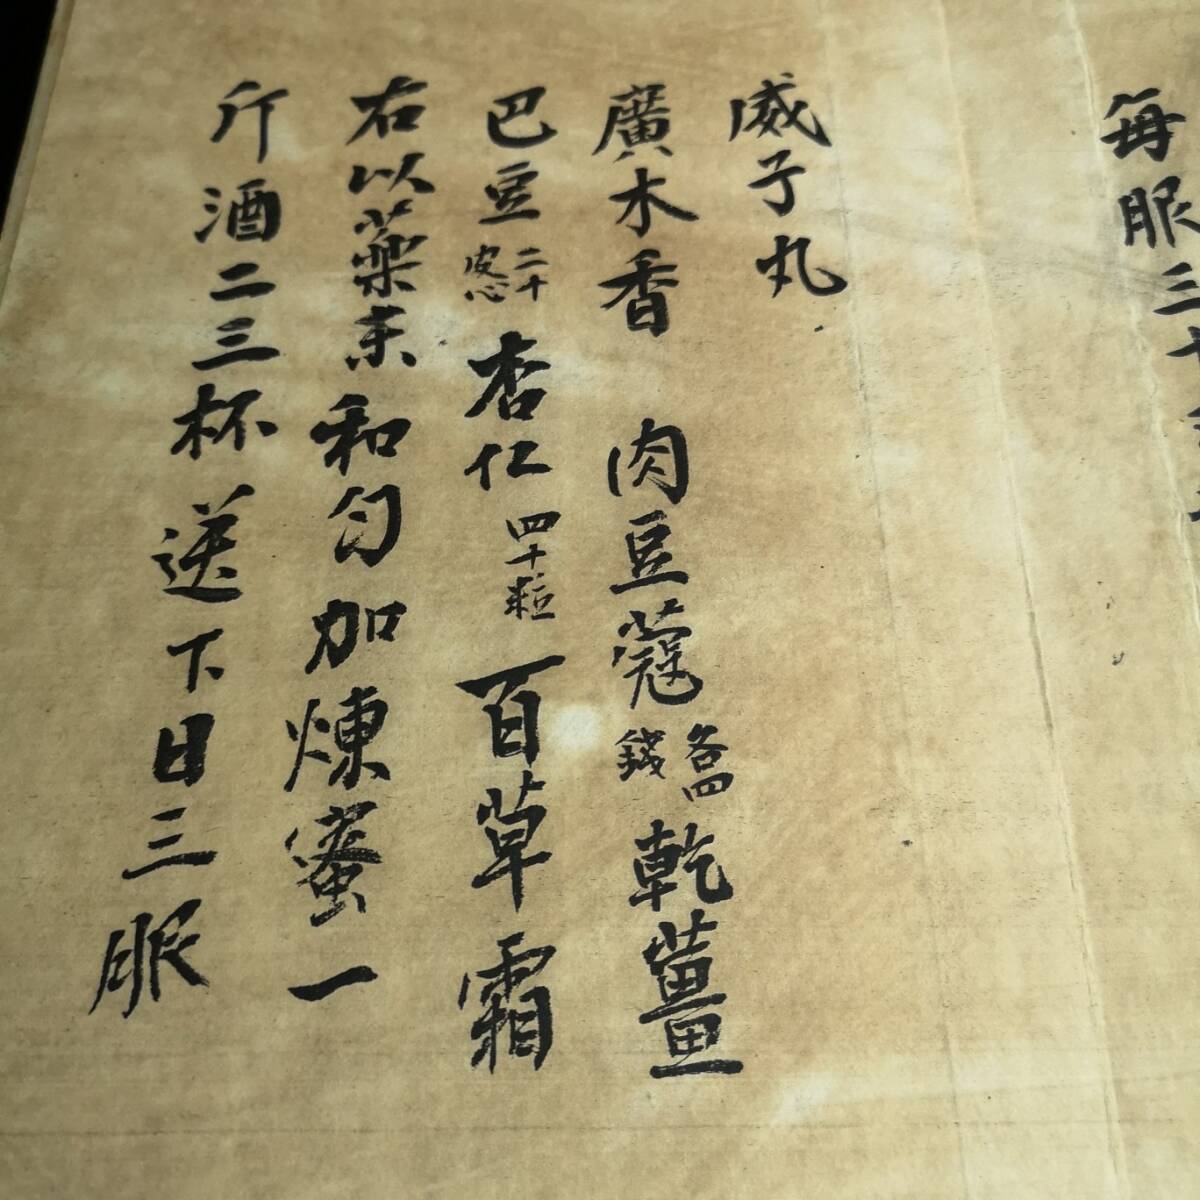 每服三十
威子丸
廣木香 肉豆蔻 各四錢 乾薑
巴豆 二十 皮心 杏仁 四十粒 百草霜
右以藥末和匀加煉蜜一
斤酒二三杯送下日三服